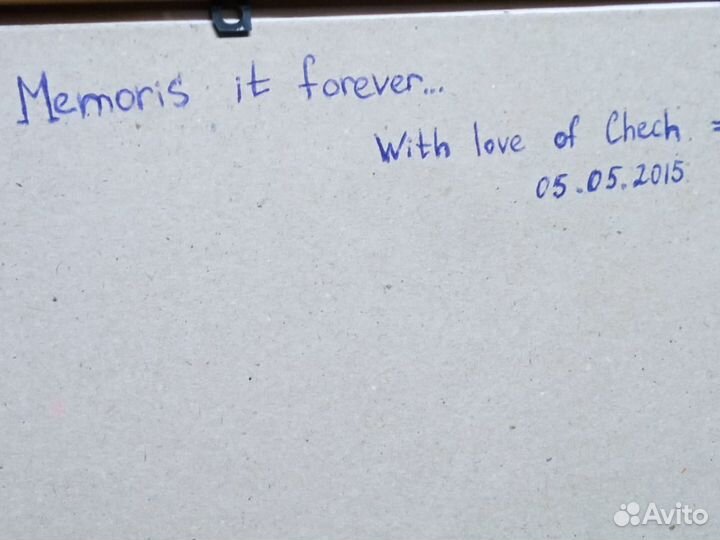 Memoris it forever...
With love of Chech =
05.05.2015
Avito